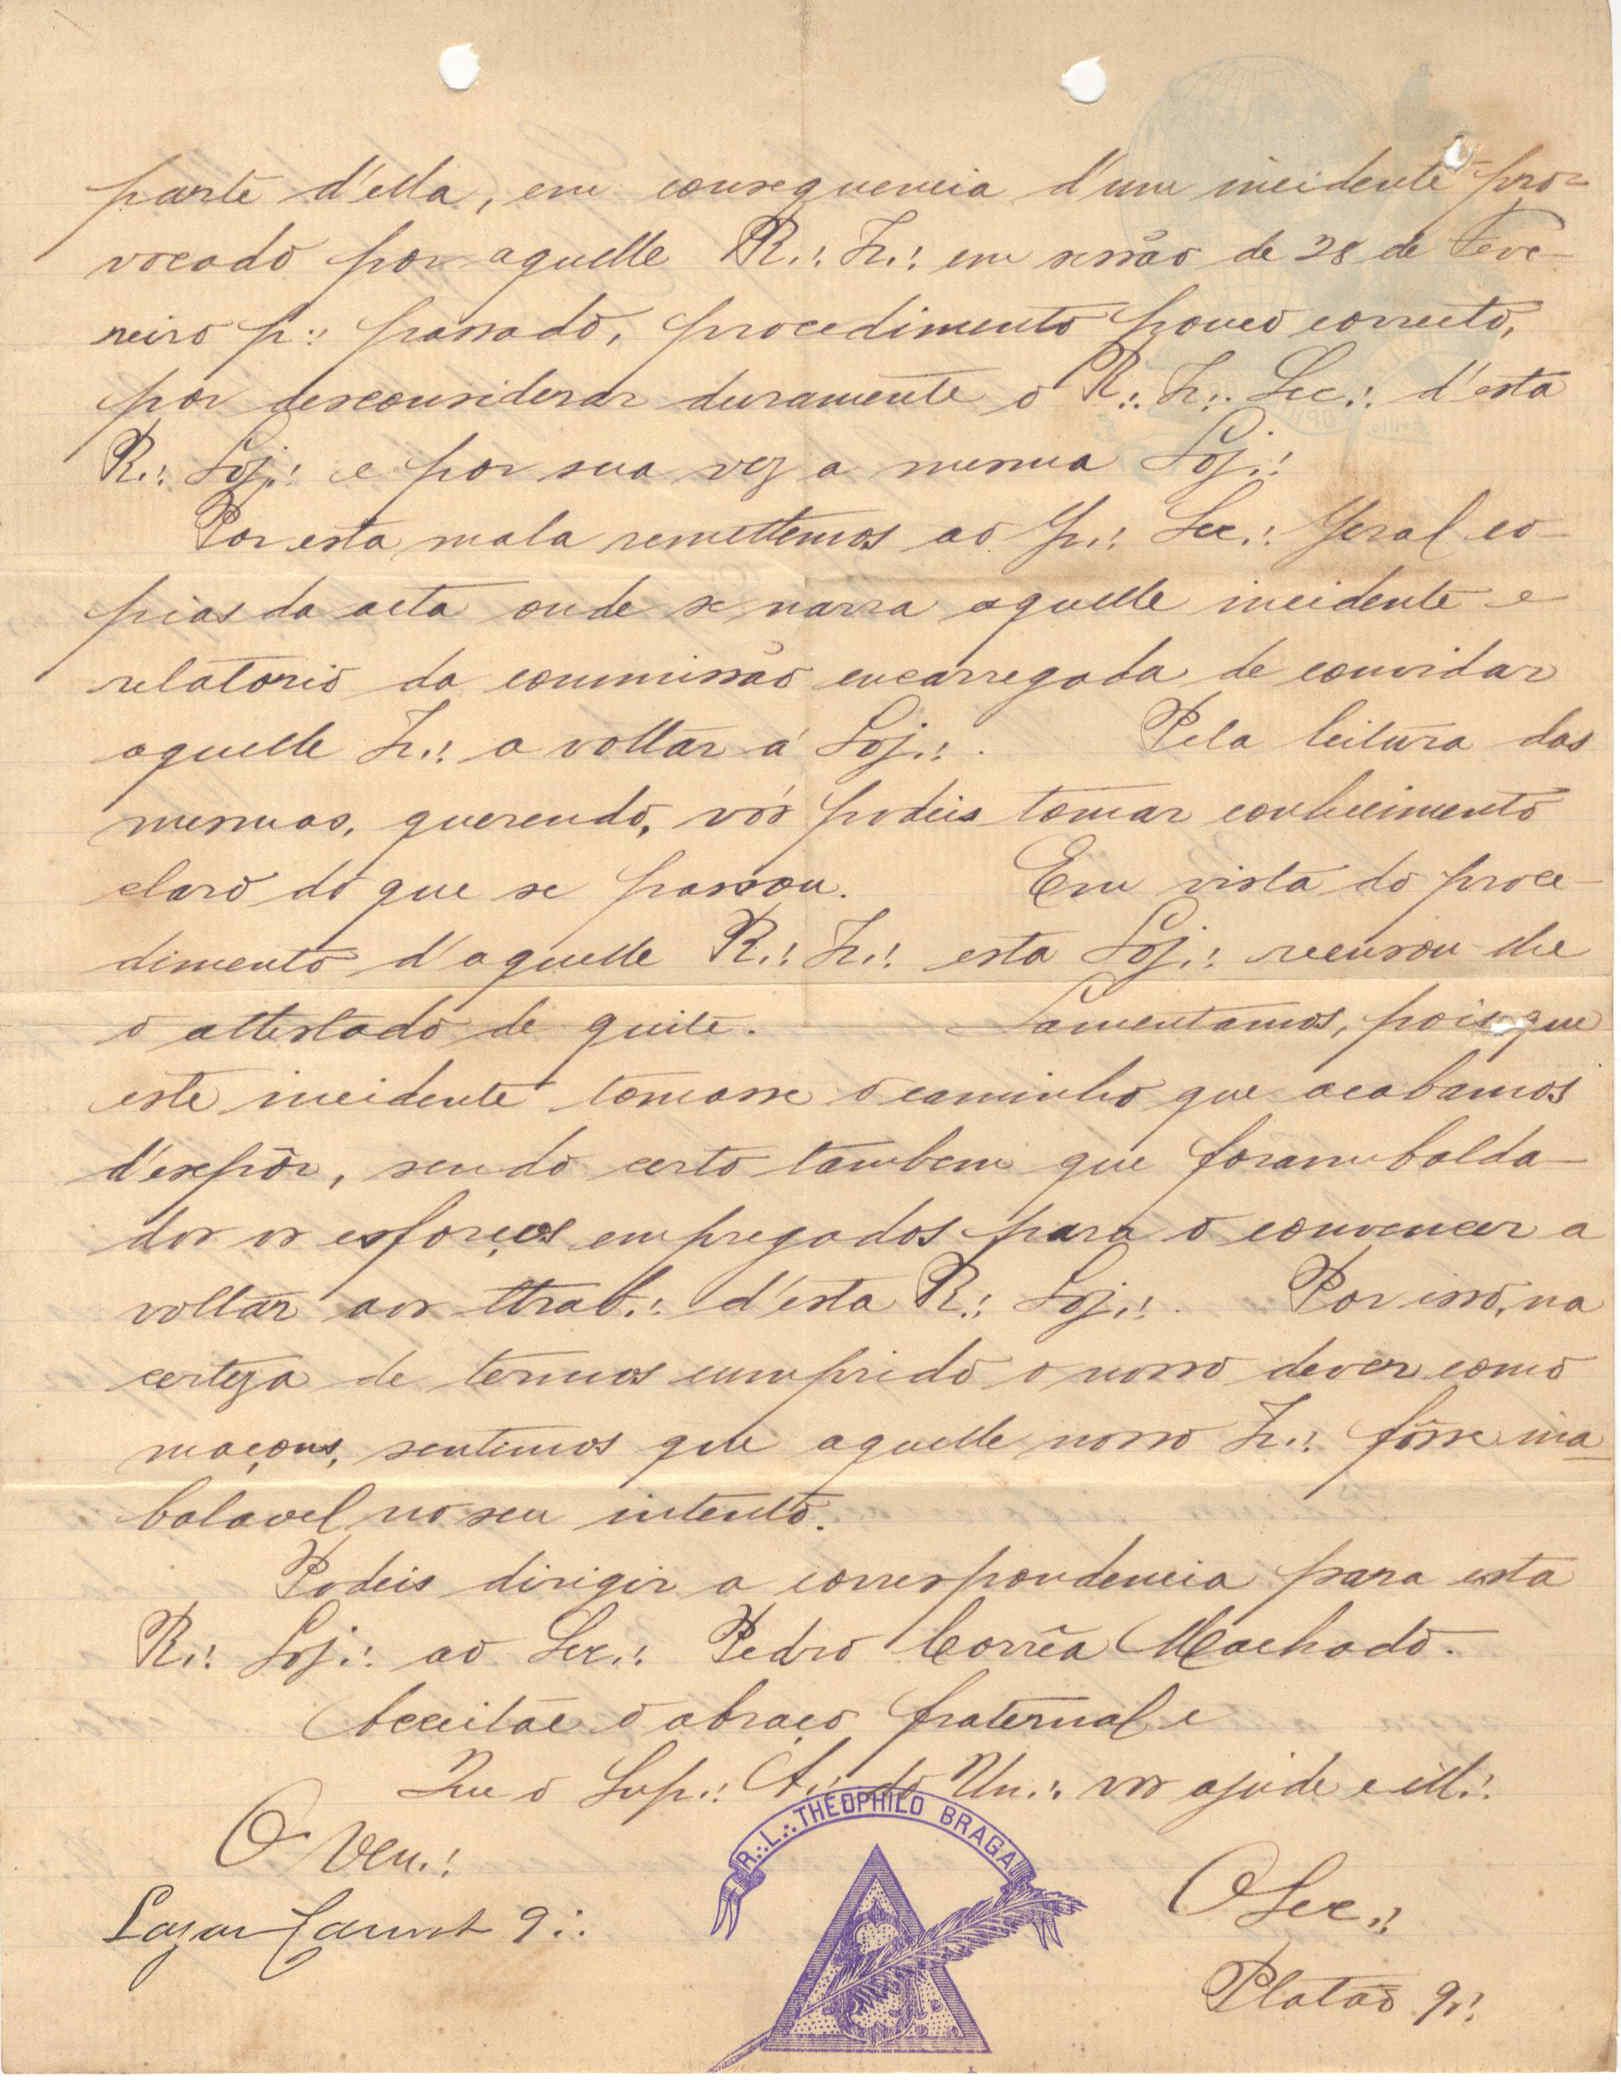 parte d'ella, em consequencia d'um incidente pro-
vocado por aquelle R.: Ir.: em sessão de 28 de Feve-
reiro p.: passado, procedimento pouco correcto,
por desconsiderar duramente o R.: Ir.: Sec.: d'esta
R.: Loj.: e por sua vez a mesma Loj.:
Por esta mala remettemos ao Gr.: Sec.: Geral co-
pias da acta onde se narra aquelle incidente e
relatorio da commissão encarregada de convidar
aquelle Ir.: a voltar á Loj.: . Pela leitura das
mesmas, querendo, vós podeis tomar conhecimento
claro do que se passou. Em vista do proce-
dimento d'aquelle R.: Ir.: esta Loj.: recusou-lhe
o attestado de quite. Lamentamos, pois que
este incidente tomasse o caminho que acabamos
d'expôr, sendo certo tambem que foram balda-
dos os esforços empregados para o convencer a
voltar aos ttrab.: d'esta R.: Loj.: . Por isso, na
certeza de termos cumprido o nosso dever como
maçons, sentimos que aquelle nosso Ir.: fôsse ina
balavel no seu intento.
Podeis dirigir a correspondencia para esta
R.: Loj.: ao Sec.: Pedro Corrêa Machado.
Acceitae o abraço fraternal e
Que o Sup.: A.: do Un.: vos ajude e ill.:
R.·.L.·. THEOPHILO BRAGA
O Ven.:
O Sec.:
Lazar Carnot 9.:
Platão 9.: